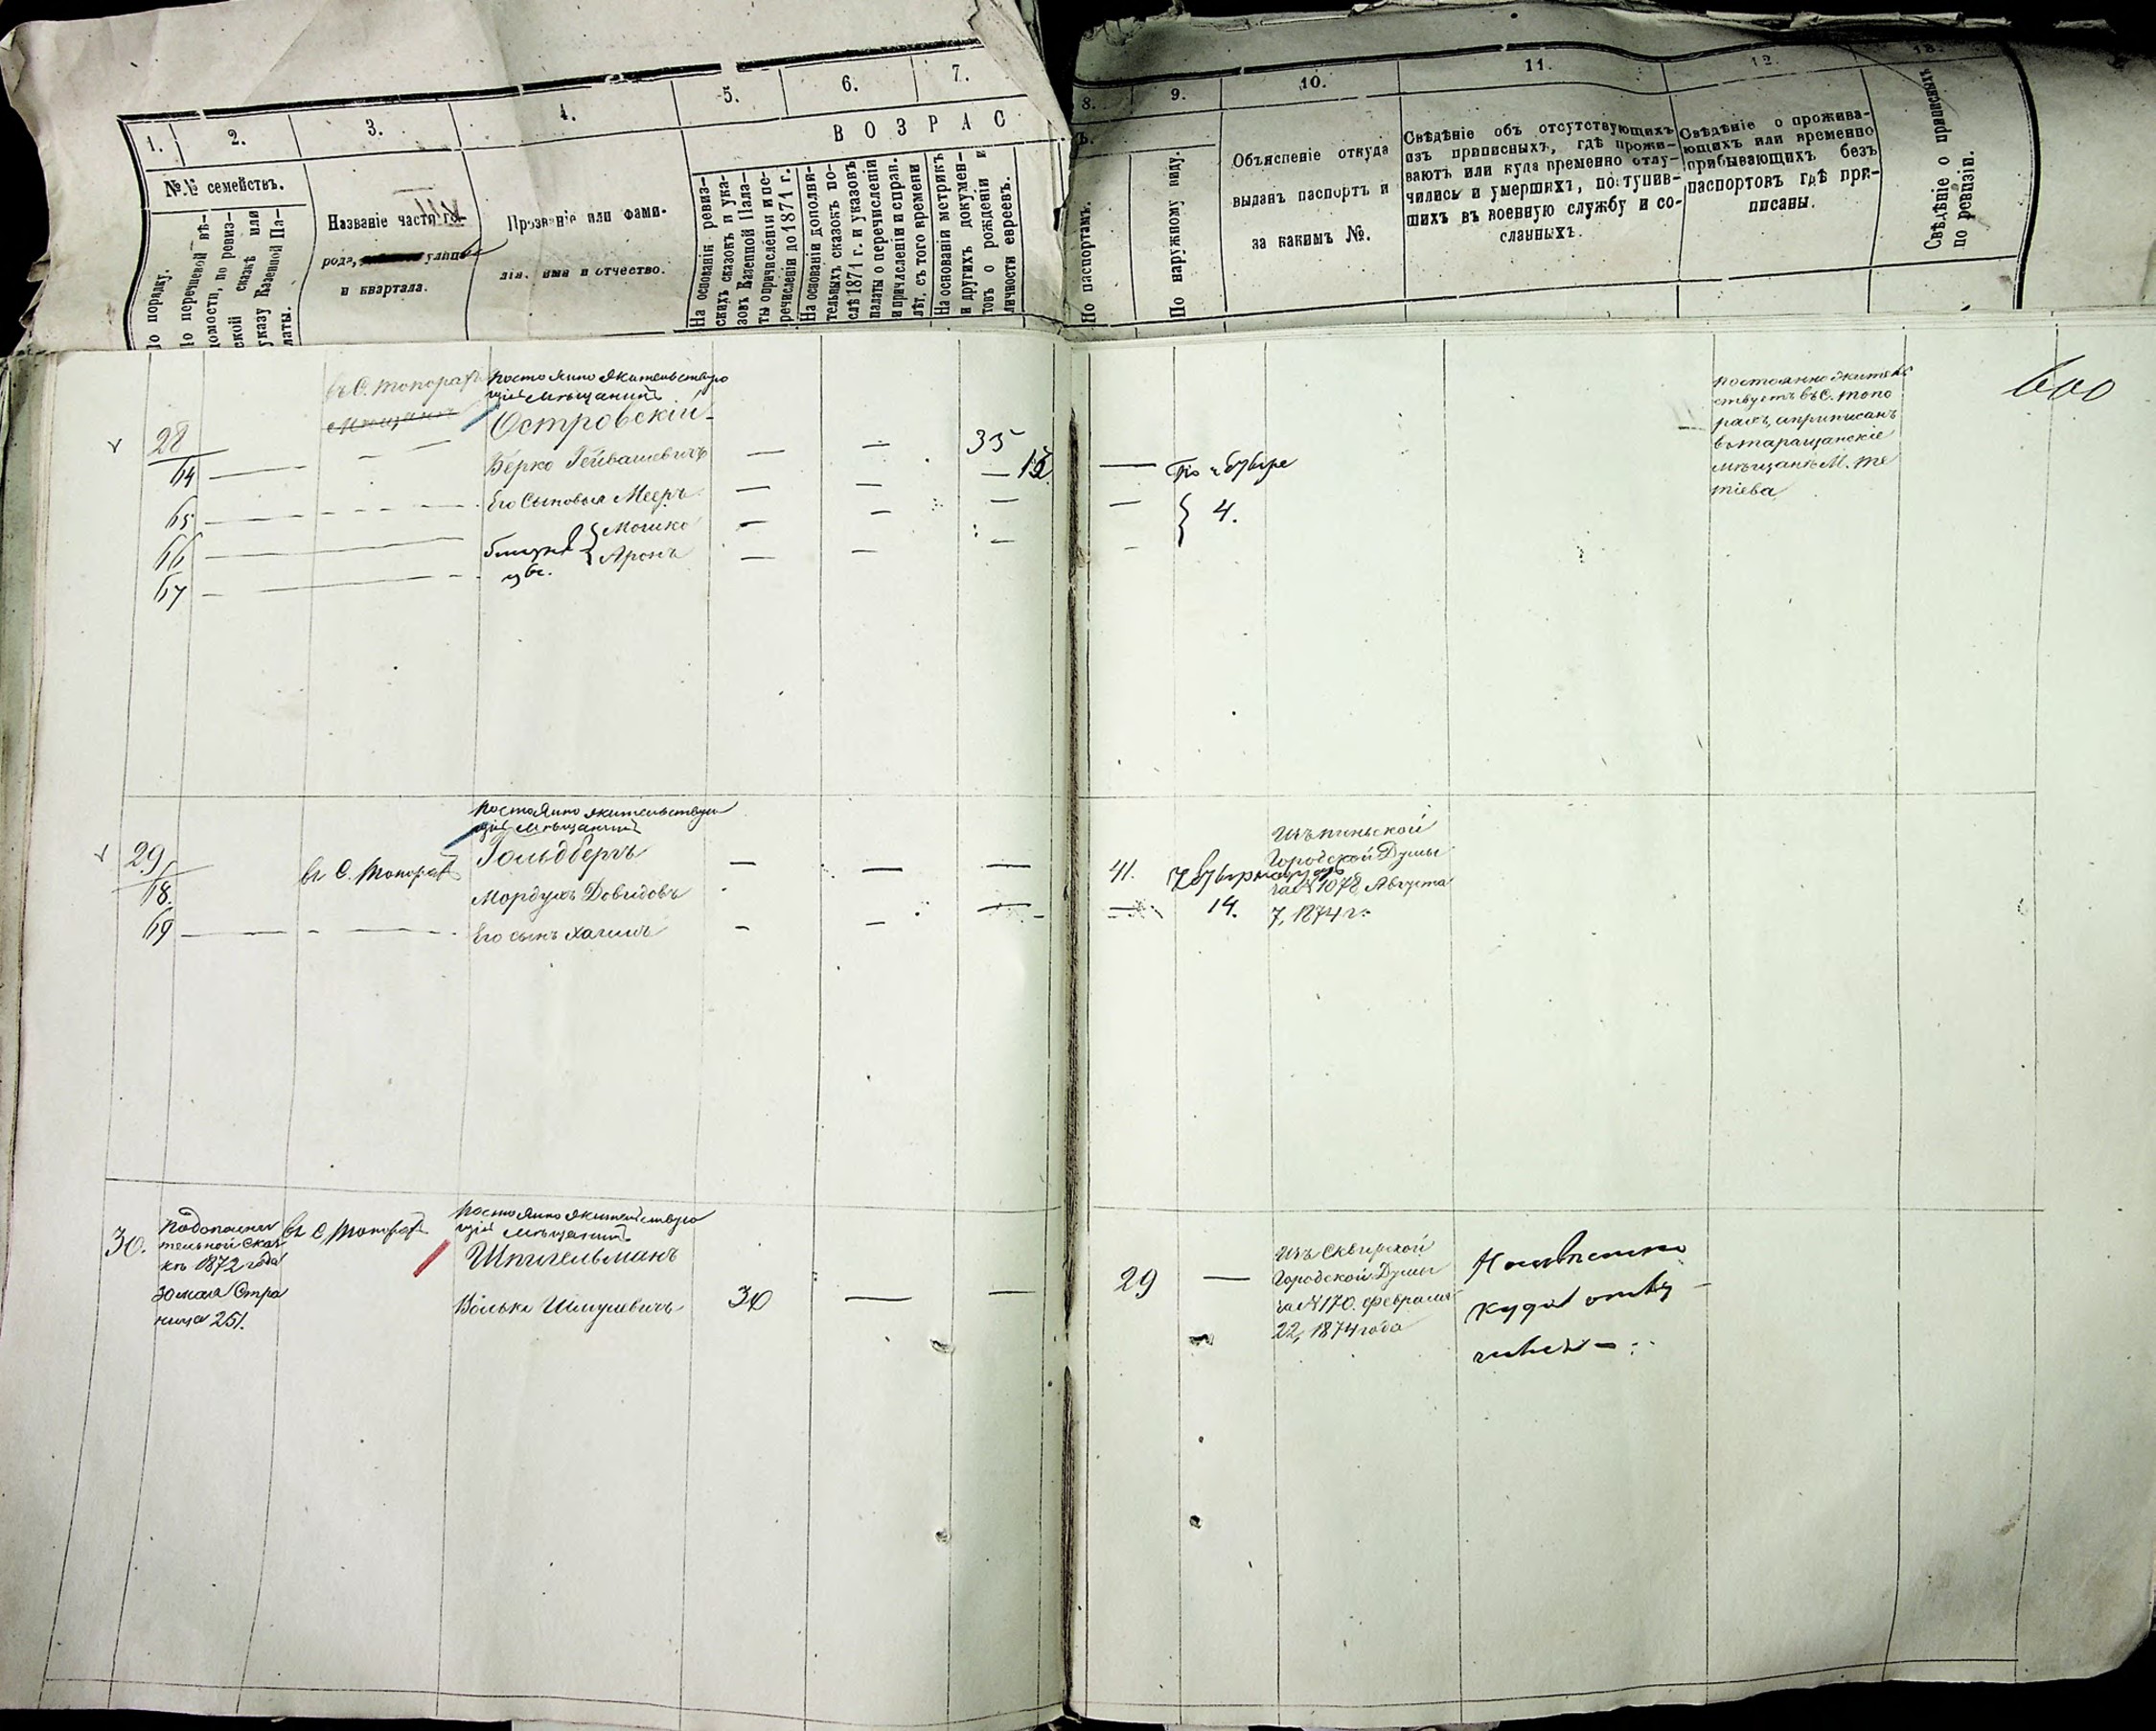 1.
2.
3.
4.
5.
6.
7.
8.
9.
10.
11.
12.
13.
№.№ семействъ.
По порядку.
По перечневой вѣ-
домости, по ревиз-
ской сказкѣ или
указу Казенной Па-
латы.
Названіе части го-
рода, улицы
и квартала.
Прозваніе или фами-
лія, имя и отчество.
В О З Р А С
На основаніи ревиз-
скихъ сказокъ и ука-
зовъ Казенной Пала-
ты о причисленіи и пе-
речисленіи до 1871 г.
На основаніи дополни-
тельныхъ сказокъ по-
слѣ 1871 г. и указовъ
палаты о перечисленіи
и причисленіи и справ.
лѣт. съ того времени
На основаніи метрикъ
и другихъ докумен-
товъ о рожденіи и
личности евреевъ.
Ъ.
По паспортамъ.
По наружному виду.
Объясненіе откуда
выданъ паспортъ и
за какимъ №.
Свѣдѣніе объ отсутствующихъ
изъ приписныхъ, гдѣ прожи-
ваютъ или куда временно отлу-
чились и умершихъ, поступив-
шихъ въ военную службу и со-
сланныхъ.
Свѣдѣніе о прожива-
ющихъ или временно
прибывающихъ безъ
паспортовъ гдѣ при-
писаны.
Свѣдѣніе о приписныхъ
по ревизіи.
600
въ С. Топорахъ
постоянно жительствую
щій мѣщанинъ
28
Островскій
64
Берко Гейвашевичъ
35
65
Его Сыновья Мееръ
15
66
Мошко
67
Аронъ
4.
постоянно жительс
ствуетъ въ С. Топо
рахъ, а приписанъ
въ таращанскіе
мѣщане М. Те
тіева
постоянно жительствую
щій мѣщанинъ
29
въ С. Топорахъ
Гольдбергъ
68.
Мордухъ Довидовъ
41.
69
Его сынъ Хаимъ
14.
Городской Думы
за № 1078, Августа
7, 1874 г.
30.
Подополни
тельной Сказ
кѣ 1872 года
Юмая Стра
ница 251.
въ С. Топорахъ
постоянно жительствую
щій мѣщанинъ
Шпигельманъ
Волько Шмулевичъ
30
29
Изъ Сквирской
Городской Думы
за № 170. февраля
22, 1874 года
Неизвѣстно
куда отлу
чился